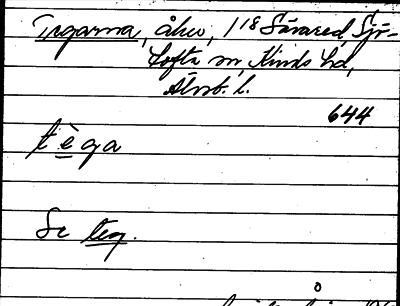 Tegarna, åker, 1/18 Sävared, Sjö-
tofta sn, Kinds hd,
Älvsb. l.
644
tèga
Se teg.